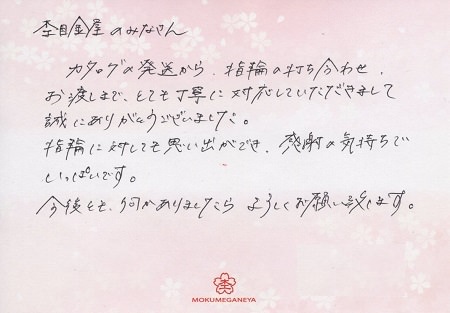 杢目金屋のみなさん
カタログの発送から、指輪の打ち合わせ、
お渡しまで、とても丁寧に対応していただきまして
誠にありがとうございました。
指輪に対しても思い出ができ、感謝の気持ちで
いっぱいです。
今後とも、何かありましたら よろしくお願い致します。
杢
MOKUMEGANEYA